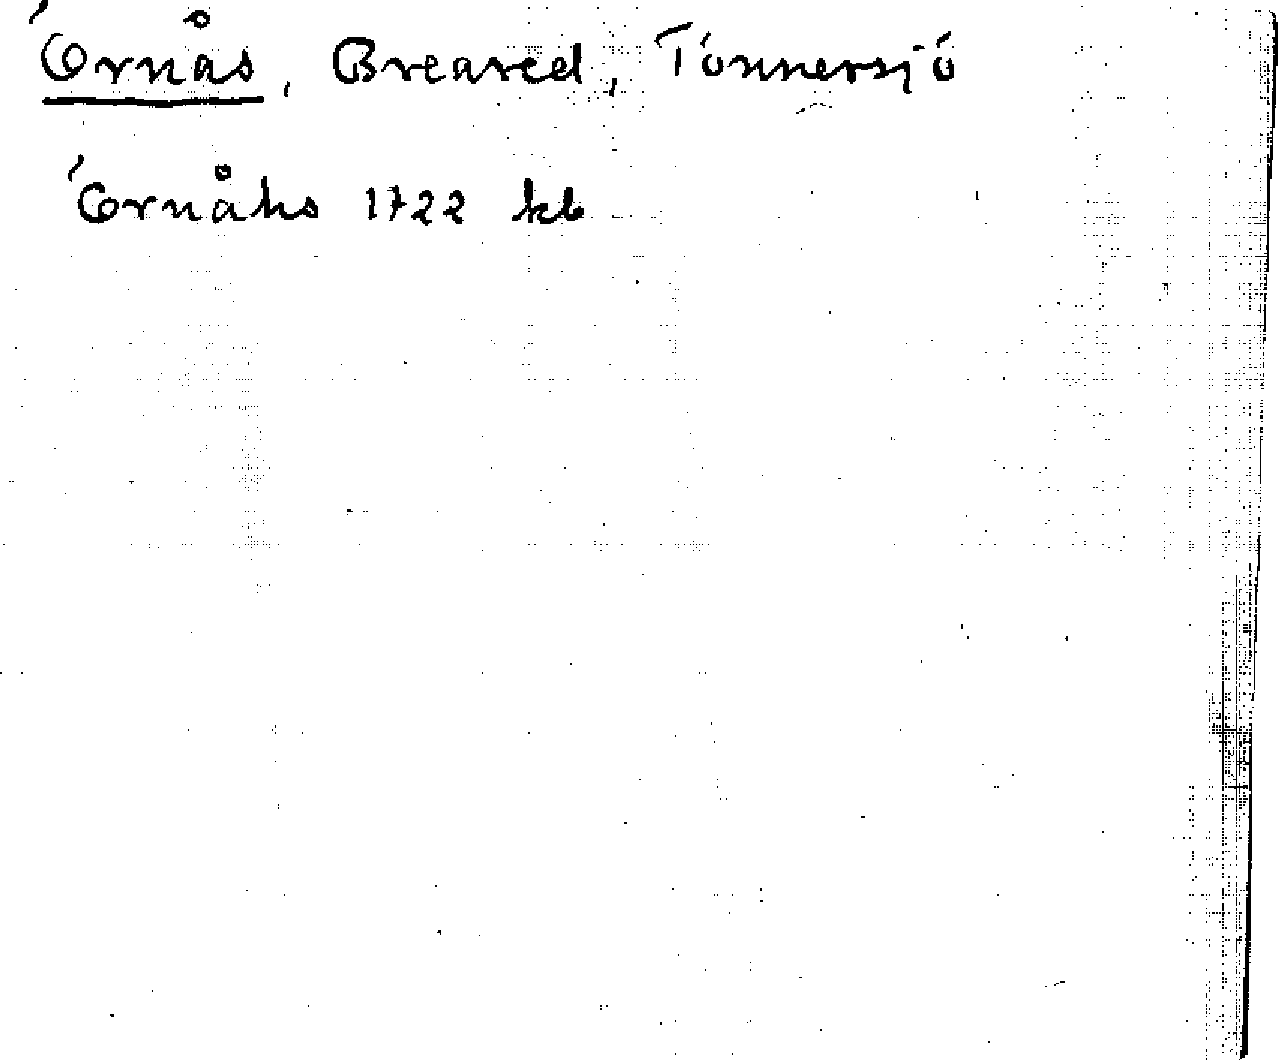 Örnås, Breared, Tönnersjö
Örnåhs 1722 kb